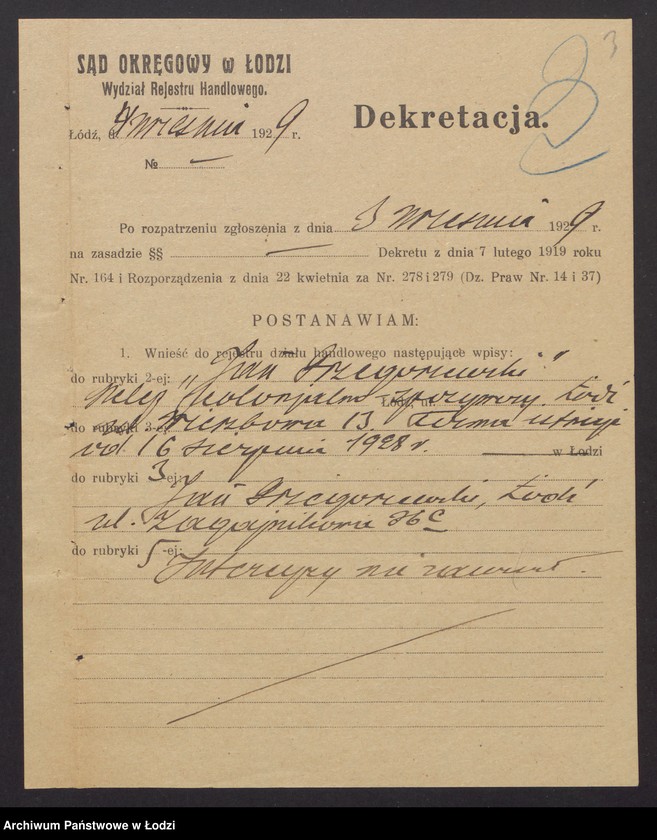 3
SĄD OKRĘGOWY w ŁODZI
Wydział Rejestru Handlowego.
Łódź, d. 4 września 1929 r.
Dekretacja.
№ —
Po rozpatrzeniu zgłoszenia z dnia 3 września 1929 r.
na zasadzie §§ — Dekretu z dnia 7 lutego 1919 roku
Nr. 164 i Rozporządzenia z dnia 22 kwietnia za Nr. 278 i 279 (Dz. Praw Nr. 14 i 37)
POSTANAWIAM:
1. Wnieść do rejestru działu handlowego następujące wpisy:
do rubryki 2-ej: „Jan
sklep kolonjalno spożywczy. Łódź
Łódź, ul.
do rubryki 3-ej:
ul. Wierzbowa 13. Firma istnieje
od 16 sierpnia 1928 r. w Łodzi
do rubryki 3-ej:
Jan Łódź
ul. Zagajnikowa
do rubryki 5-ej:
Intercyzy nie zawierał.
Archiwum Państwowe w Łodzi